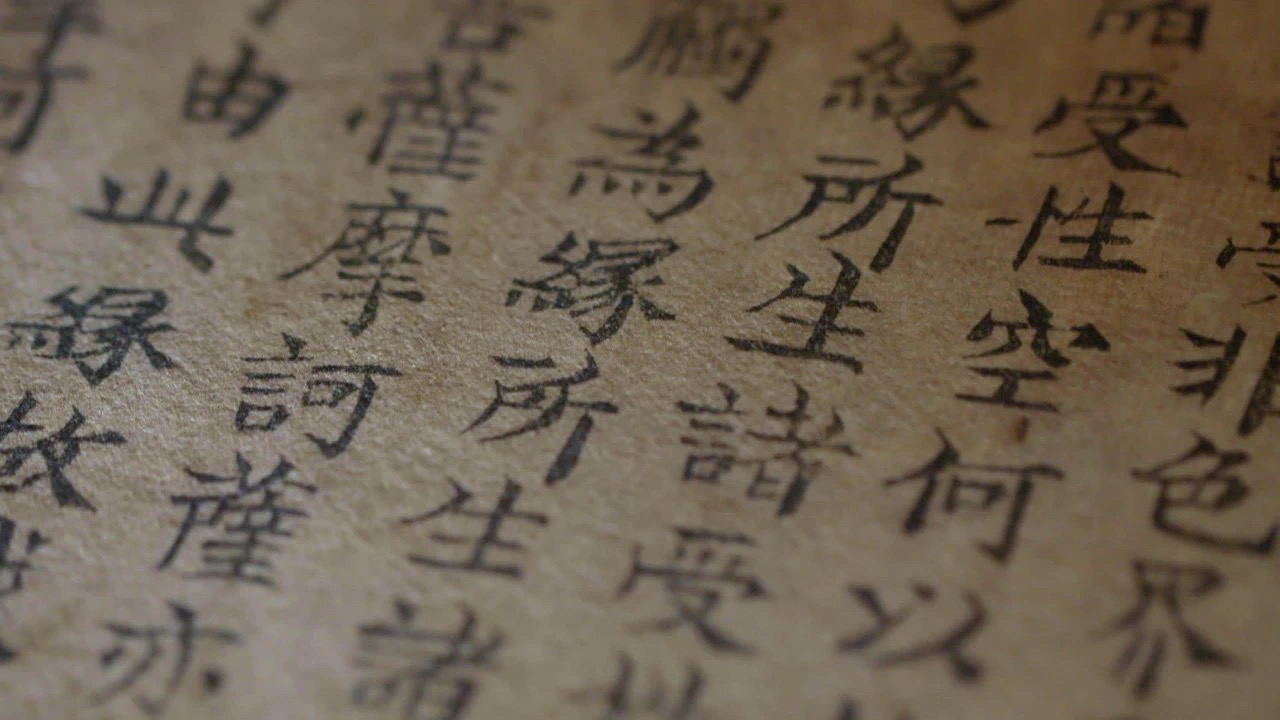 受非色界
諸受性空何以
緣所生諸受
觸為緣所生諸
菩薩摩訶薩亦
由此緣故